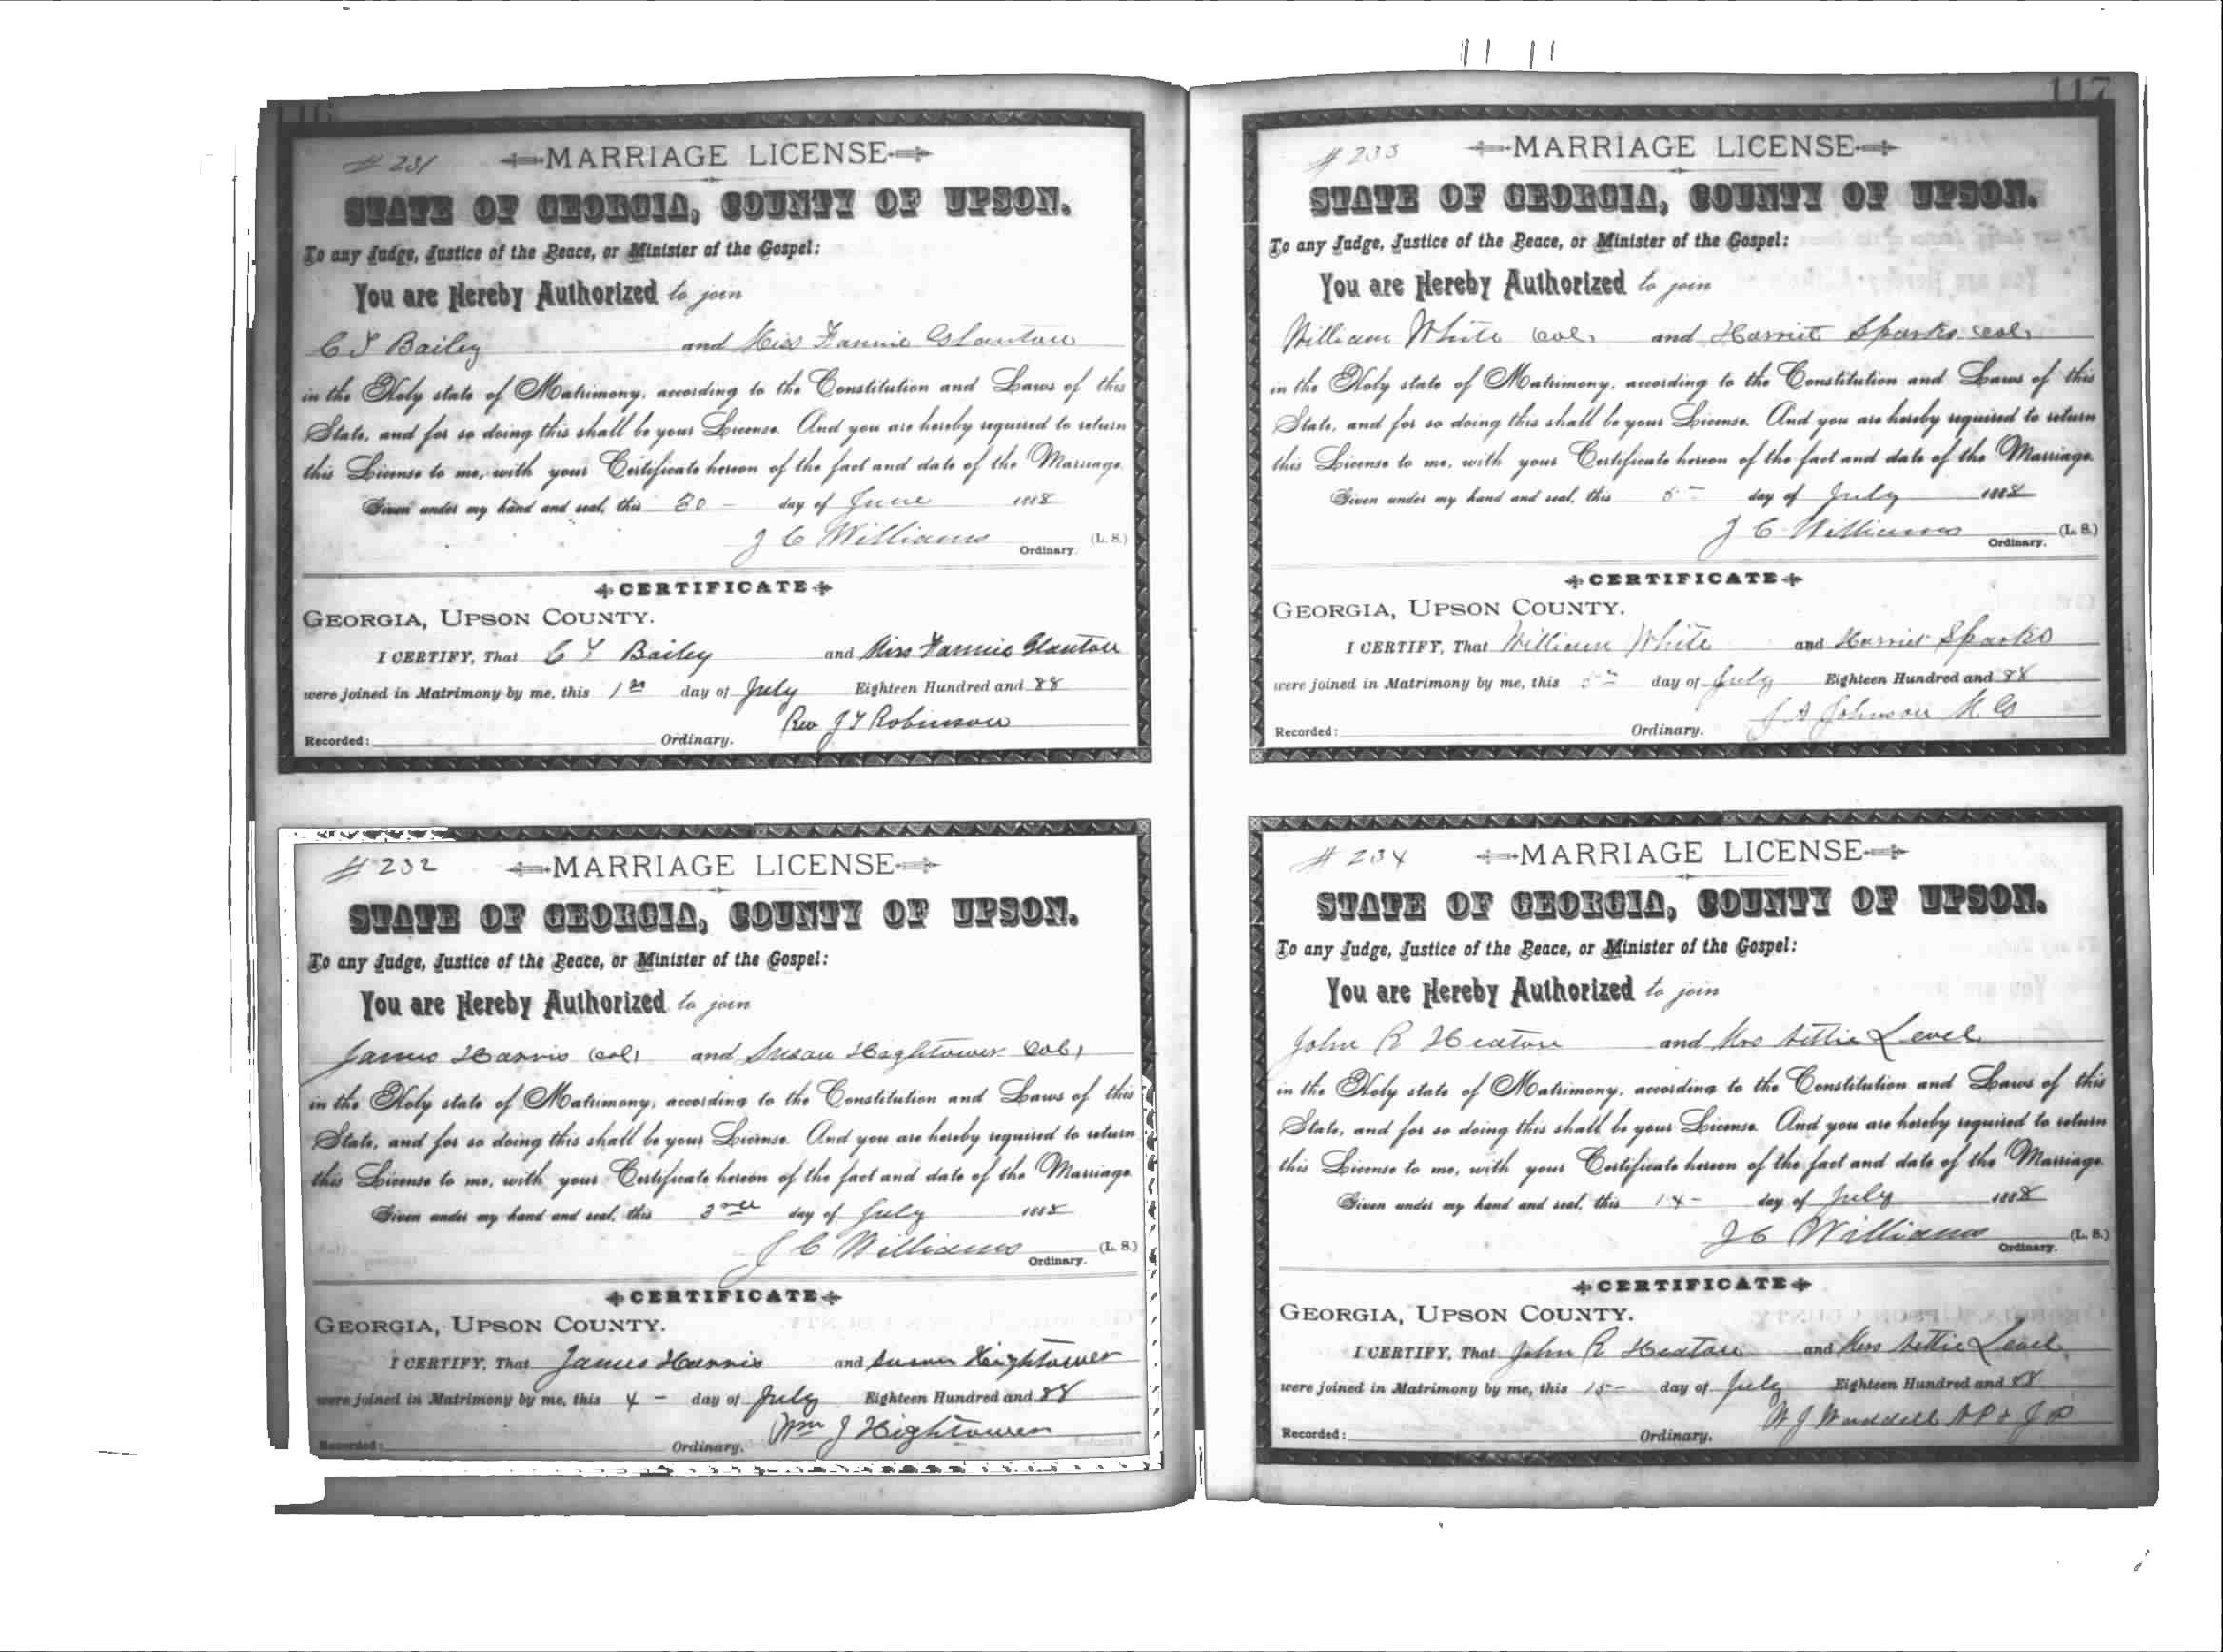 116
# 231
MARRIAGE LICENSE
STATE OF GEORGIA, COUNTY OF UPSON.
To any Judge, Justice of the Peace, or Minister of the Gospel:
You are Hereby Authorized to join
C T Bailey and Miss Fannie Glanton
in the Holy state of Matrimony, according to the Constitution and Laws of this
State, and for so doing this shall be your License. And you are hereby required to return
this License to me, with your Certificate hereon of the fact and date of the Marriage.
Given under my hand and seal, this 30 - day of June 1888
J C Williams (L. S.)
Ordinary.
CERTIFICATE
GEORGIA, UPSON COUNTY.
I CERTIFY, That C T Bailey and Miss Fannie Glanton
were joined in Matrimony by me, this 1st day of July Eighteen Hundred and 88
Rev J T Robinson
Recorded: Ordinary.
# 232
MARRIAGE LICENSE
STATE OF GEORGIA, COUNTY OF UPSON.
To any Judge, Justice of the Peace, or Minister of the Gospel:
You are Hereby Authorized to join
James Harris Col, and Susan Hightower Col,
in the Holy state of Matrimony, according to the Constitution and Laws of this
State, and for so doing this shall be your License. And you are hereby required to return
this License to me, with your Certificate hereon of the fact and date of the Marriage.
Given under my hand and seal, this 3rd day of July 1888
J C Williams (L. S.)
Ordinary.
CERTIFICATE
GEORGIA, UPSON COUNTY.
I CERTIFY, That James Harris and Susan Hightower
were joined in Matrimony by me, this 4 - day of July Eighteen Hundred and 88
Wm J Hightower
Recorded: Ordinary.
117
# 233
MARRIAGE LICENSE
STATE OF GEORGIA, COUNTY OF UPSON.
To any Judge, Justice of the Peace, or Minister of the Gospel:
You are Hereby Authorized to join
William White Col, and Harriet Sparks Col,
in the Holy state of Matrimony, according to the Constitution and Laws of this
State, and for so doing this shall be your License. And you are hereby required to return
this License to me, with your Certificate hereon of the fact and date of the Marriage.
Given under my hand and seal, this 5 - day of July 1888
J C Williams (L. S.)
Ordinary.
CERTIFICATE
GEORGIA, UPSON COUNTY.
I CERTIFY, That William White and Harriet Sparks
were joined in Matrimony by me, this 5 day of July Eighteen Hundred and 88
J A Johnson
Recorded: Ordinary.
# 234
MARRIAGE LICENSE
STATE OF GEORGIA, COUNTY OF UPSON.
To any Judge, Justice of the Peace, or Minister of the Gospel:
You are Hereby Authorized to join
John R Heaton and Mrs Level
in the Holy state of Matrimony, according to the Constitution and Laws of this
State, and for so doing this shall be your License. And you are hereby required to return
this License to me, with your Certificate hereon of the fact and date of the Marriage.
Given under my hand and seal, this 14 - day of July 1888
J C Williams (L. S.)
Ordinary.
CERTIFICATE
GEORGIA, UPSON COUNTY.
I CERTIFY, That John R Heaton and Mrs Level
were joined in Matrimony by me, this 15 - day of July Eighteen Hundred and 88
W J Waddell N P & J P
Recorded: Ordinary.